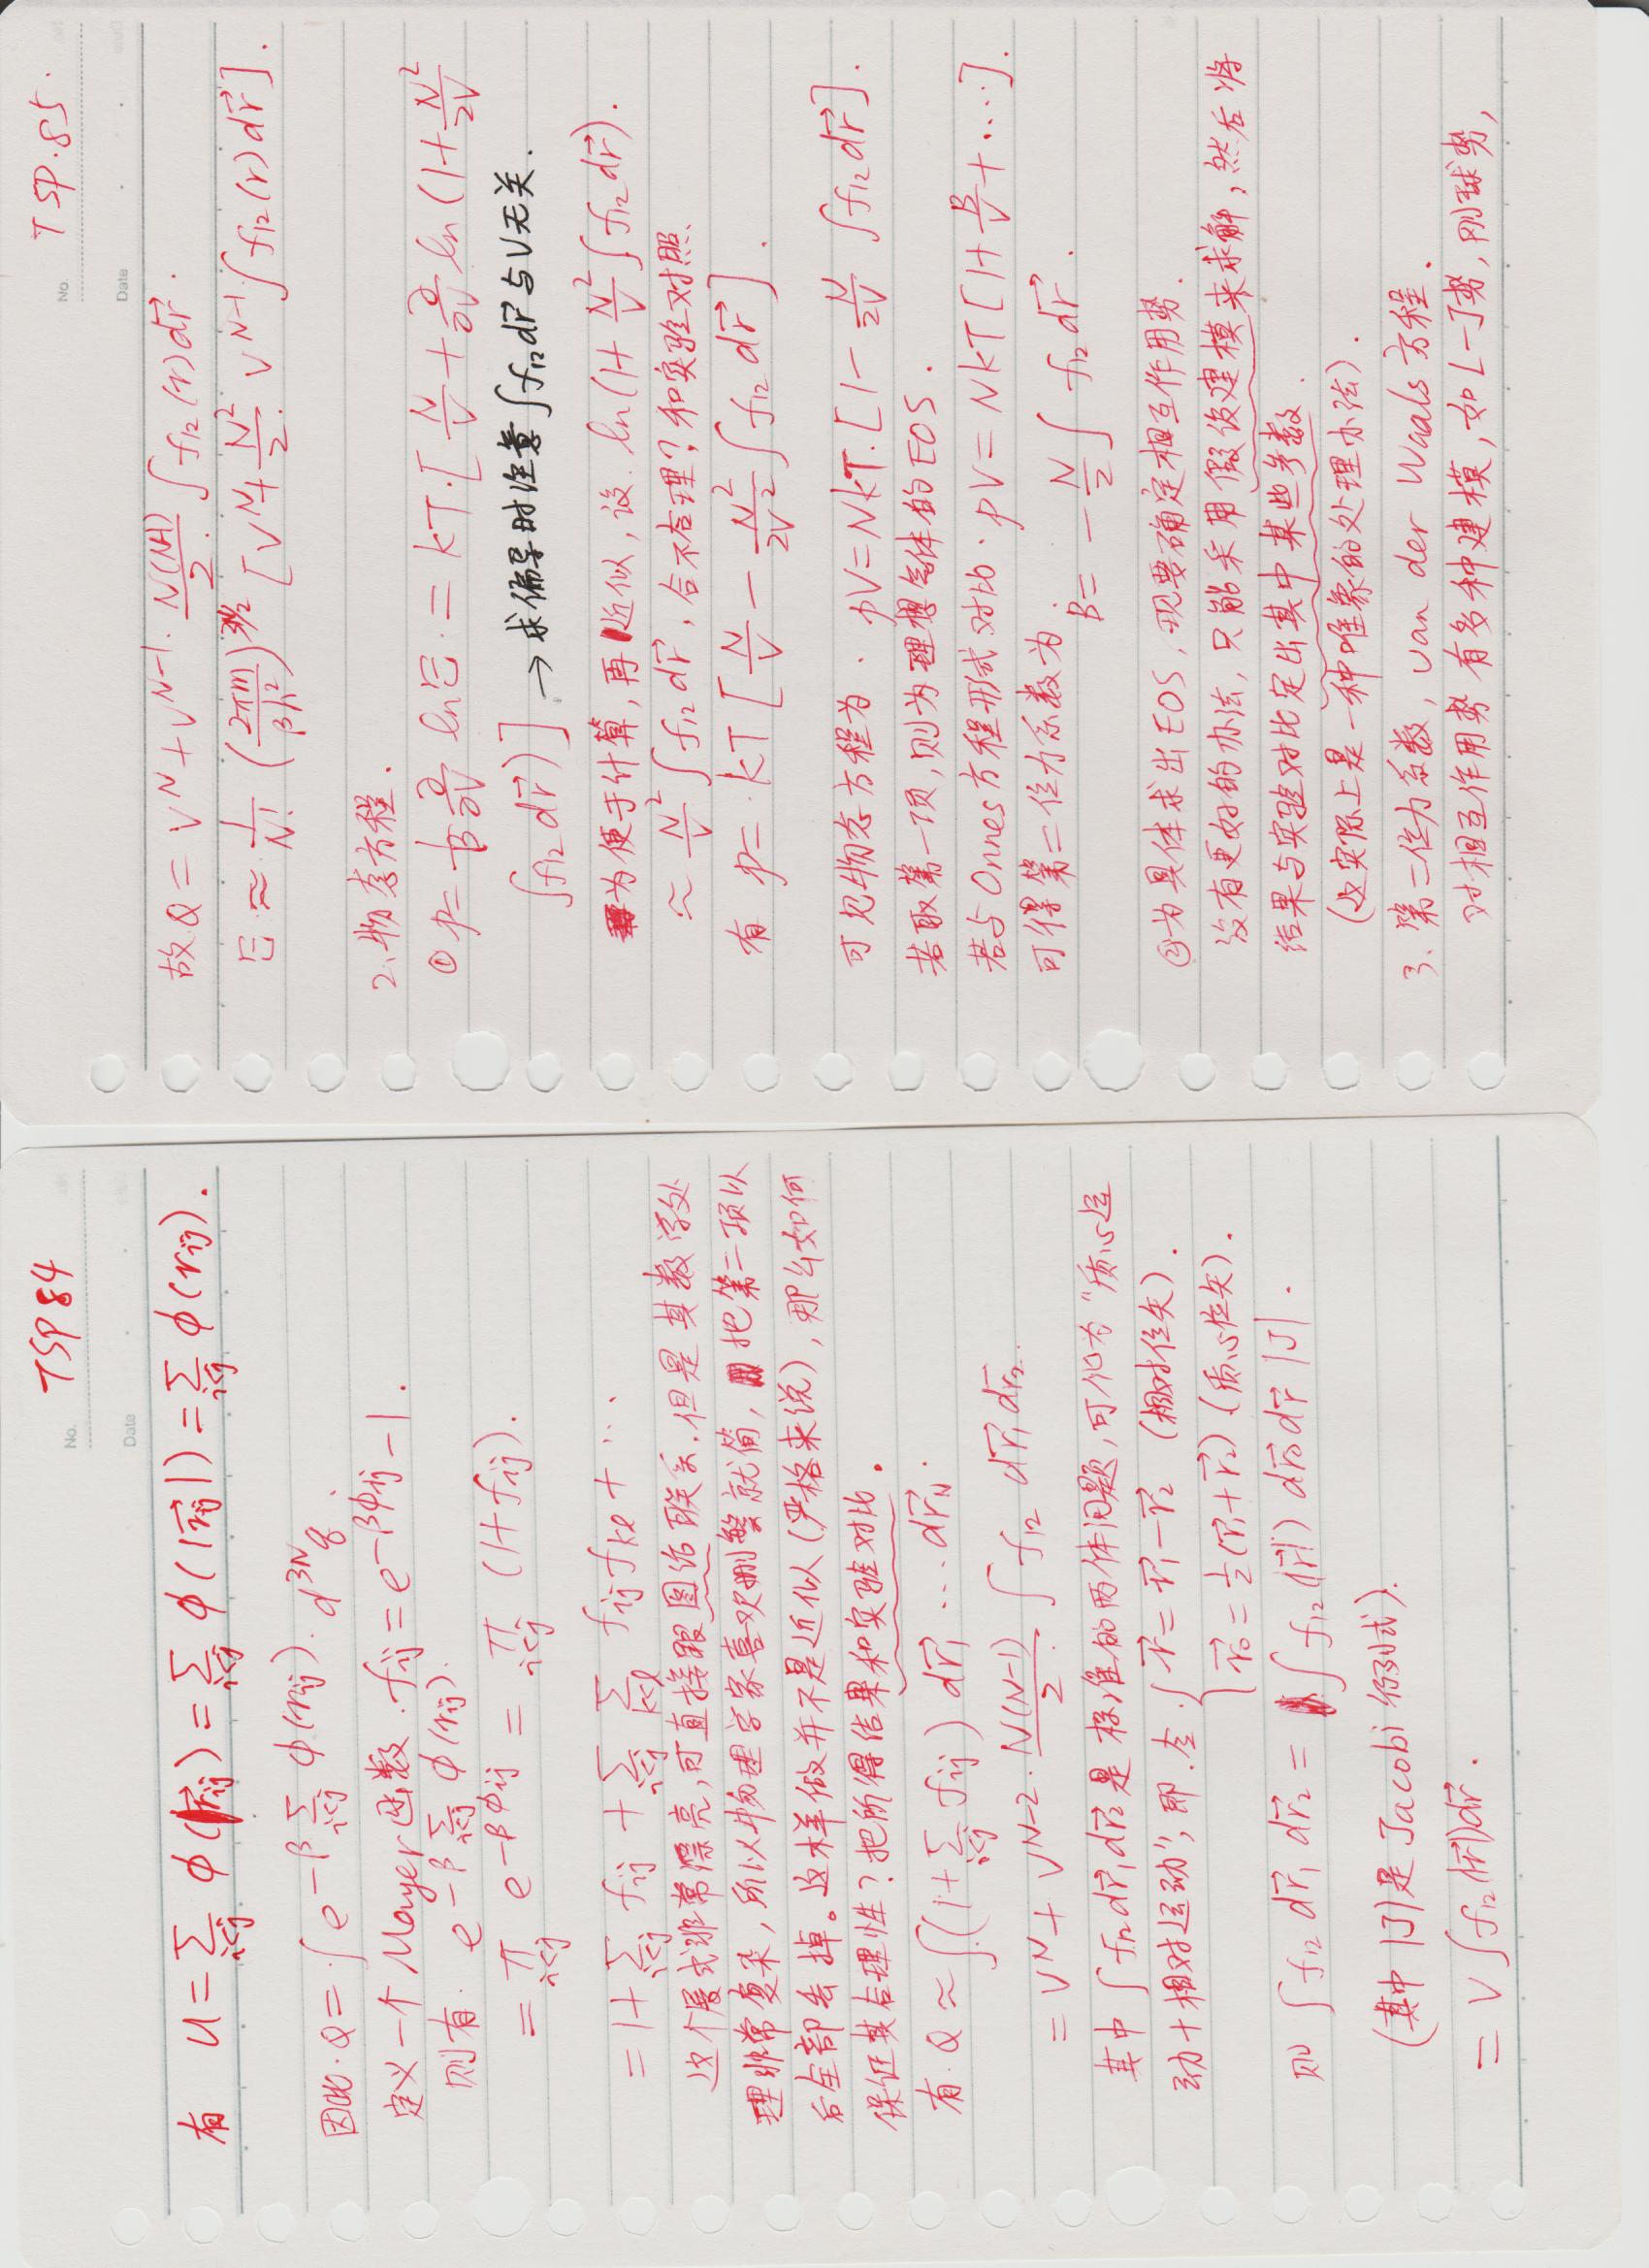 No. TSP 84
Date
有 U = ∑_{i<j} φ(r⃗_{ij}) = ∑_{i<j} φ(|r⃗_{ij}|) = ∑_{i<j} φ(r_{ij}).
因此. Q = ∫ e^{-β ∑_{i<j} φ(r_{ij})} d^{3N}q.
定义一个 Mayer 函数. f_{ij} = e^{-βφ_{ij}} - 1.
则有. e^{-β ∑_{i<j} φ(r_{ij})}.
= ∏_{i<j} e^{-βφ_{ij}} = ∏_{i<j} (1+f_{ij}).
= 1 + ∑_{i<j} f_{ij} + ∑_{i<j} ∑_{k<l} f_{ij} f_{kl} + …
这个展式非常漂亮,可直接跟图论联系.但是其数学处
理非常复杂,所以物理学家喜欢删繁就简,把第二项以
后全部丢掉。这样做并不是近似(严格来说),那么如何
保证其合理性?把所得结果和实验对比.
有. Q ≈ ∫(1+∑_{i<j} f_{ij}) dr⃗₁ … dr⃗_N.
= V^N + V^{N-2} · \frac{N(N-1)}{2} ∫ f₁₂ dr⃗₁ dr⃗₂.
其中 ∫ f₁₂ dr⃗₁ dr⃗₂ 是标准的两体问题,可化为“质心运
动+相对运动”,即.令. { r⃗ = r⃗₁ - r⃗₂ (相对位矢).
r⃗₀ = ½(r⃗₁+r⃗₂) (质心位矢).
则 ∫ f₁₂ dr⃗₁ dr⃗₂ = ∫ f₁₂(|r⃗|) dr⃗₀ dr⃗ |J|.
(其中 |J| 是 Jacobi 行列式).
= V ∫ f₁₂(|r⃗|) dr⃗.
No. TSP.85.
Date
故 Q = V^N + V^{N-1} · \frac{N(N-1)}{2} ∫ f₁₂(r) dr⃗.
Ξ ≈ \frac{1}{N!} (\frac{2πm}{βh²})^{3N/2} [V^N + \frac{N²}{2} V^{N-1} ∫ f₁₂(r) dr⃗].
2、物态方程.
① p = \frac{1}{β} \frac{∂}{∂V} ln Ξ = kT.[\frac{N}{V} + \frac{∂}{∂V} ln(1+\frac{N²}{2V}
∫ f₁₂ dr⃗)] → 求偏导时注意 ∫f₁₂dr⃗ 与V无关.
为便于计算,再近似,设. ln(1+\frac{N²}{V} ∫ f₁₂ dr⃗).
≈ \frac{N²}{V} ∫ f₁₂ dr⃗,合不合理?和实验对照
有 p = kT [\frac{N}{V} - \frac{N²}{2V²} ∫ f₁₂ dr⃗].
可见物态方程为. pV = NkT.[1 - \frac{N}{2V} ∫ f₁₂ dr⃗].
若取第一项,则为理想气体的 EOS.
若与 Onnes 方程形式对比. pV = NkT [1+\frac{B}{V}+….].
可得第二位力系数为.
B = -\frac{N}{2} ∫ f₁₂ dr⃗.
②为具体求出 EOS,现要确定相互作用势.
没有更好的办法,只能采用假设建模来求解,然后将
结果与实验对比定出其中某些参数.
(这实际上是一种唯象的处理办法).
3. 第二位力系数, van der Waals 方程.
对相互作用势有多种建模,如 L-J 势,刚球势,